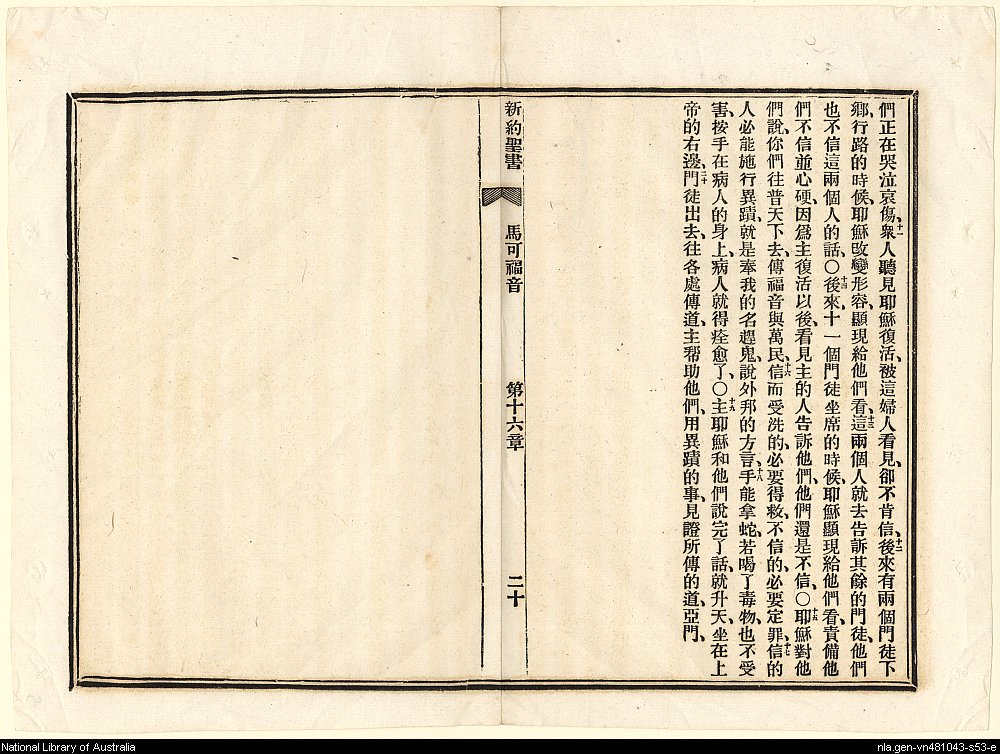 們正在哭泣哀傷、十一衆人聽見耶穌復活、被這婦人看見、卻不肯信、十二後來有兩個門徒下
鄉、行路的時候、耶穌改變形容、顯現給他們看、十三這兩個人就去告訴其餘的門徒、他們
也不信這兩個人的話、〇十四後來十一個門徒坐席的時候、耶穌顯現給他們看、責備他
們不信並心硬、因爲主復活以後、看見主的人告訴他們、他們還是不信、〇十五耶穌對他
們說、你們往普天下去、傳福音與萬民、十六信而受洗的、必要得救、不信的、必要定罪、十七信的
人必能施行異蹟、就是奉我的名趕鬼、說外邦的方言、十八手能拿蛇、若喝了毒物、也不受
害、按手在病人的身上、病人就得痊愈了、〇十九主耶穌和他們說完了話、就升天、坐在上
帝的右邊、二十門徒出去、往各處傳道、主幫助他們、用異蹟的事、見證所傳的道、亞門、
新約聖書 馬可福音 第十六章 二十
National Library of Australia
nla.gen-vn481043-s53-e